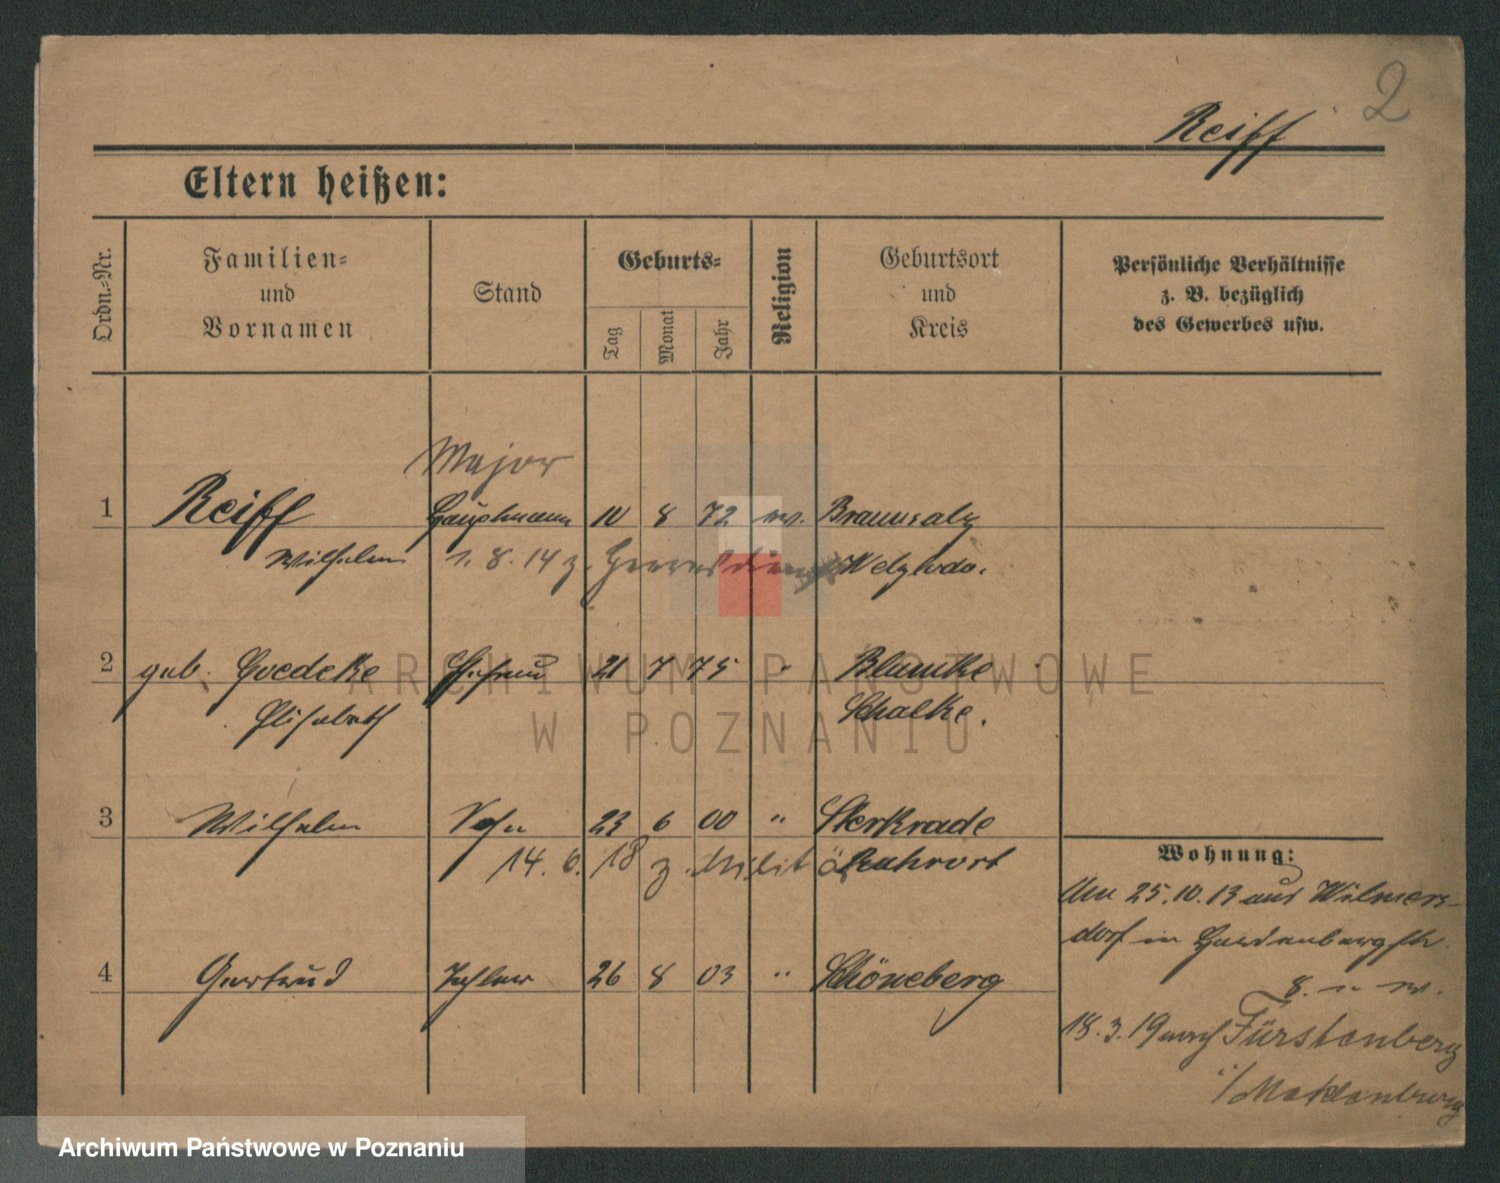 2
Reiff
Eltern heißen:
Ordn.-Nr.
Familien-
und
Vornamen
Stand
Geburts-
Tag
Monat
Jahr
Religion
Geburtsort
und
Kreis
Persönliche Verhältnisse
z. B. bezüglich
des Gewerbes usw.
Major
1 Reiff Hauptmann 10 8 72 ev.
Wilhelm 1. 8. 14 z. Heeresdienst
2 geb. Goedeke Ehefrau 21 7 75 "
Elisabeth Schalke.
3 Wilhelm Sohn 23 6 00 " Sterkrade
14. 6. 18 z. Militär Ruhrort
Wohnung:
Am 25.10.13 aus Wilmers-
dorf in Hardenbergstr.
4 Gertrud Tochter 26 8 03 " Schöneberg
8.
18.3.19 nach Fürstenberg
i/Meklenburg
ARCHIWUM PAŃSTWOWE
W POZNANIU
Archiwum Państwowe w Poznaniu